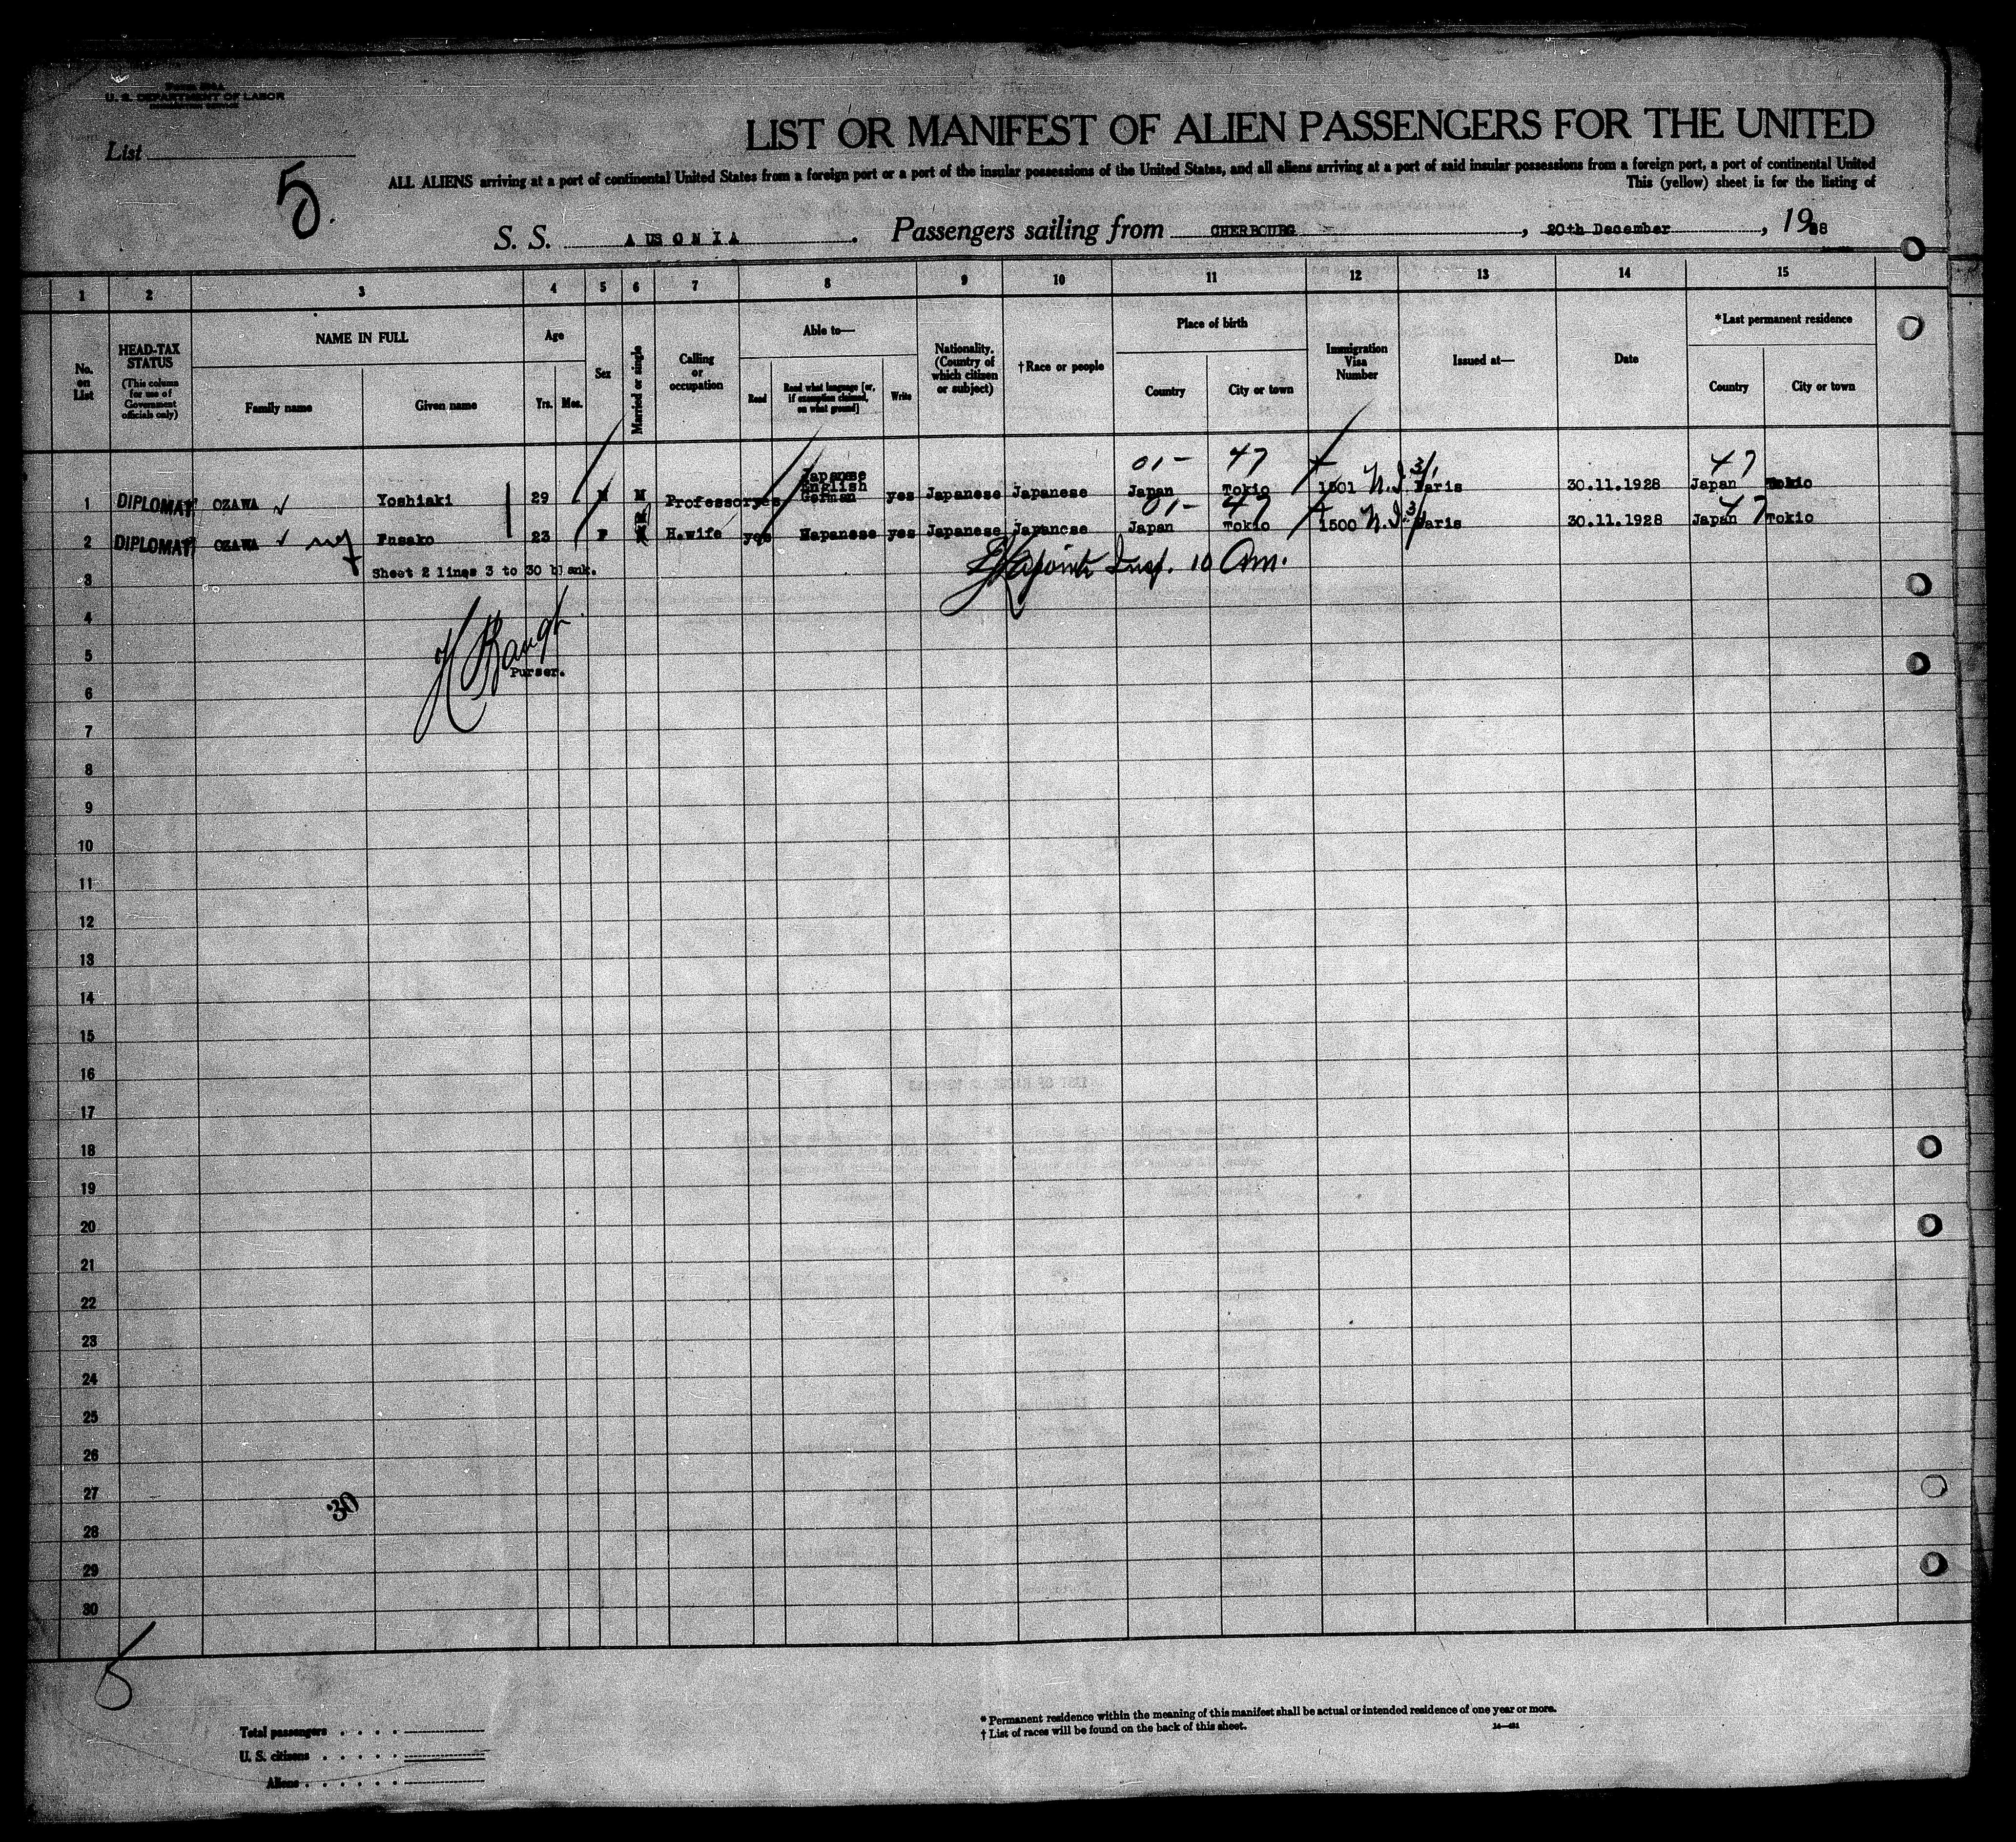 U. S. DEPARTMENT OF LABOR
List
5
LIST OR MANIFEST OF ALIEN PASSENGERS FOR THE UNITED
ALL ALIENS arriving at a port of continental United States from a foreign port or a port of the insular possessions of the United States, and all aliens arriving at a port of said insular possessions from a foreign port, a port of continental United
This (yellow) sheet is for the listing of
S. S. AUSONIA. Passengers sailing from CHERBOURG, 20th December, 19 28
1 2 3 4 5 6 7 8 9 10 11 12 13 14 15
No. on List
HEAD-TAX STATUS (This column for use of Government officials only)
NAME IN FULL
Family name Given name
Age
Yrs. Mos.
Sex
Married or single
Calling or occupation
Able to—
Read Read what language [or, if exemption claimed, on what ground] Write
Nationality. (Country of which citizen or subject)
†Race or people
Place of birth
Country City or town
Immigration Visa Number
Issued at—
Date
*Last permanent residence
Country City or town
01- 47 47
1 DIPLOMAT OZAWA Yoshiaki 29 M M Professor yes Japanese English German yes Japanese Japanese Japan Tokio 1501 Paris 30.11.1928 Japan Tokio
01- 47 47
2 DIPLOMAT OZAWA Fusako 23 F H.wife yes Hapanese yes Japanese Japanese Japan Tokio 1500 Paris 30.11.1928 Japan Tokio
3 Sheet 2 lines 3 to 30 blank.
Insp. 10 Am.
4
5
Purser.
6
7
8
9
10
11
12
13
14
15
16
17
18
19
20
21
22
23
24
25
26
27
30
28
29
30
5
Total passengers
U. S. citizens
Aliens
* Permanent residence within the meaning of this manifest shall be actual or intended residence of one year or more.
† List of races will be found on the back of this sheet.